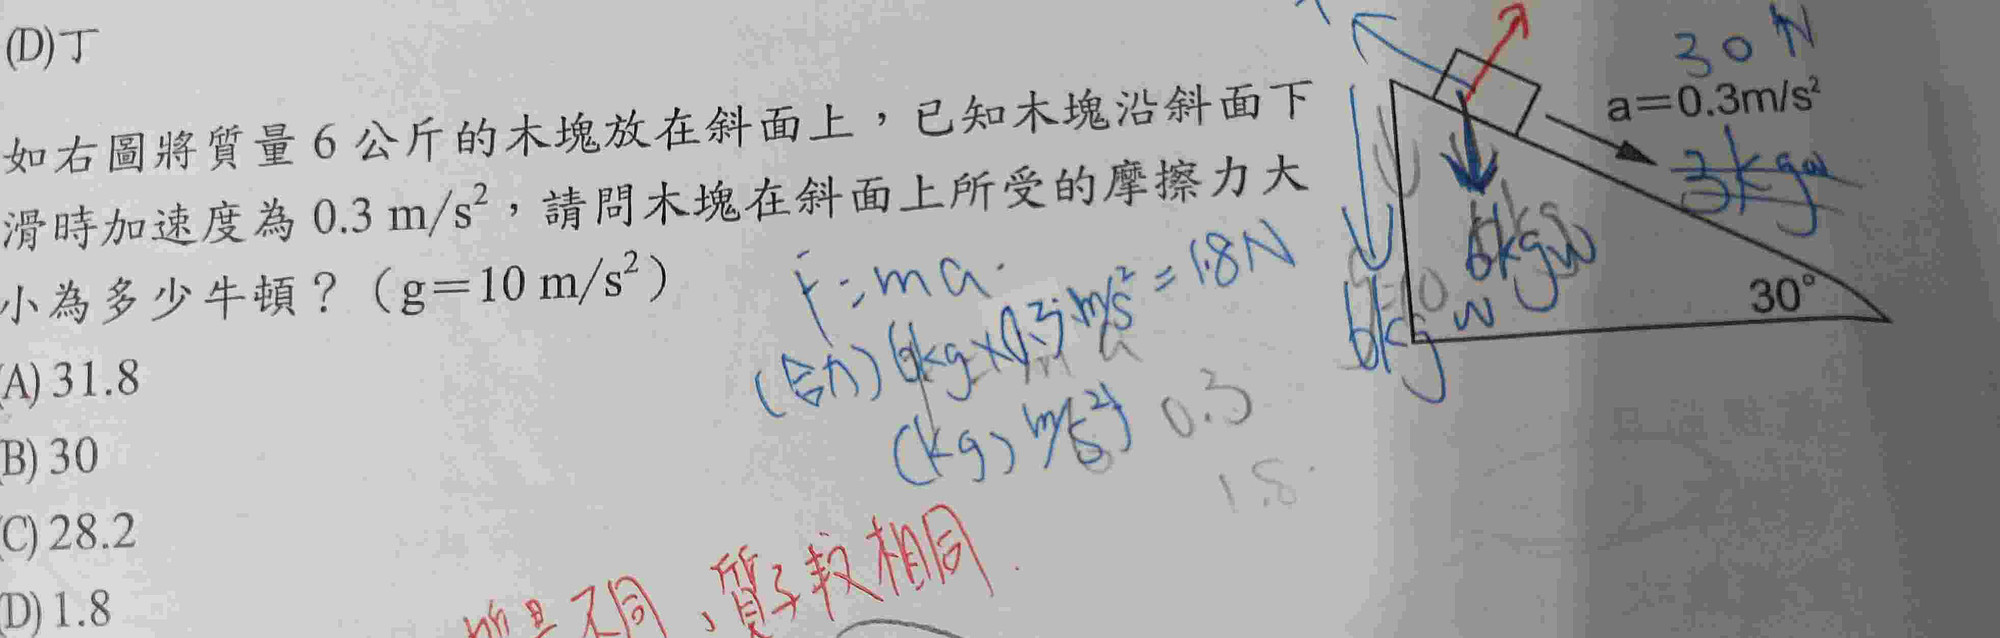 (D)丁
如右圖將質量 6 公斤的木塊放在斜面上，已知木塊沿斜面下
滑時加速度為 0.3 m/s²，請問木塊在斜面上所受的摩擦力大
小為多少牛頓？（g＝10 m/s²）
(A) 31.8
(B) 30
(C) 28.2
(D) 1.8
30 N
a＝0.3m/s²
3kgw
6kgw
6kgw
30°
F=ma
(合力) 6kg×0.3 m/s² = 1.8N
(kg) m/s²
0.3
1.8
不同、質子數相同